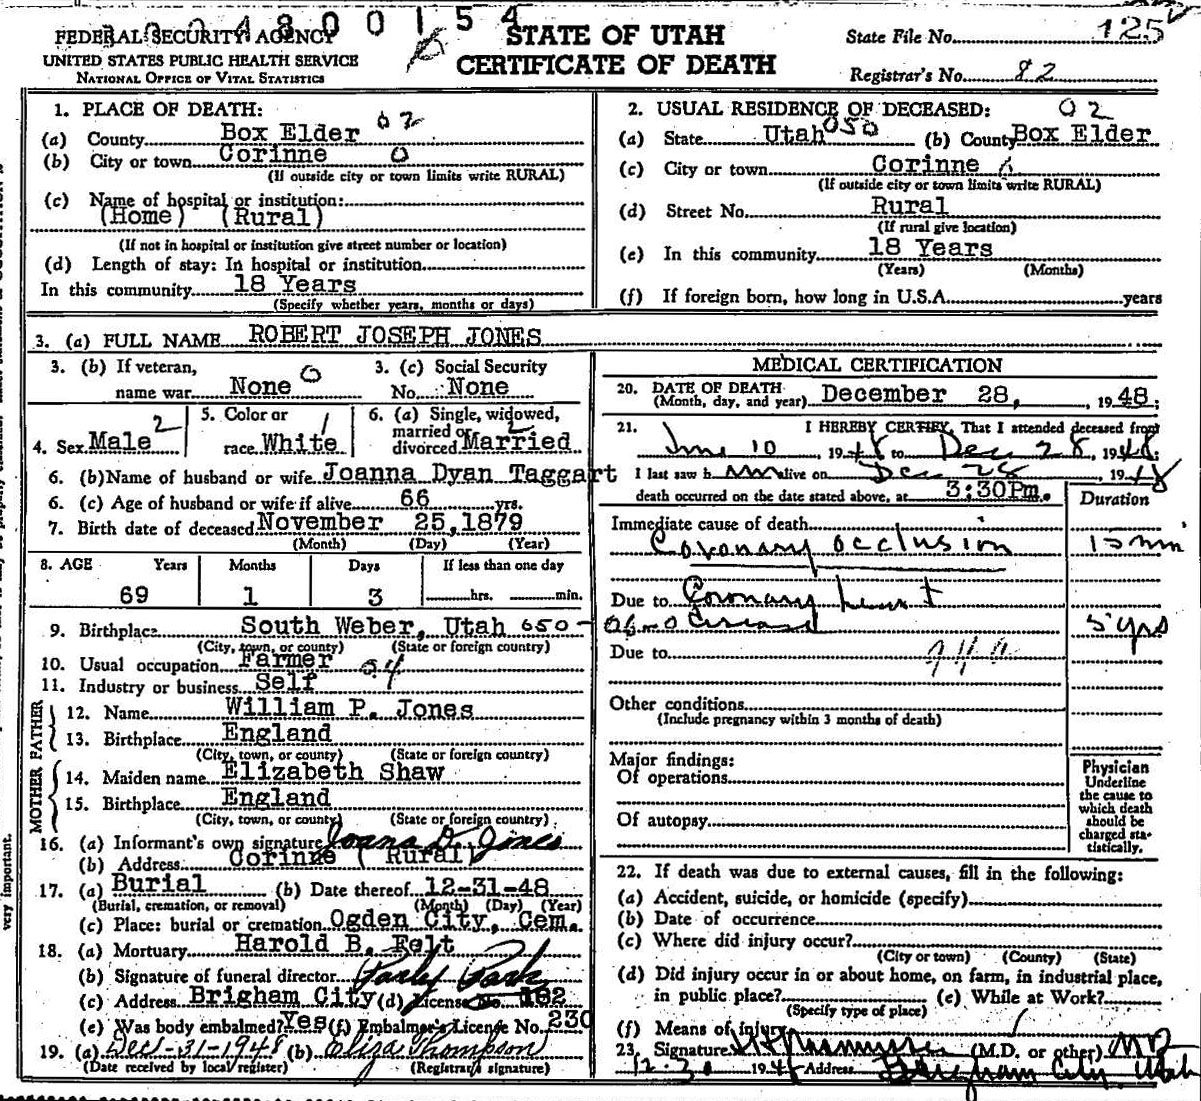 3004800154
FEDERAL SECURITY AGENCY
UNITED STATES PUBLIC HEALTH SERVICE
NATIONAL OFFICE OF VITAL STATISTICS
STATE OF UTAH
CERTIFICATE OF DEATH
State File No. 125
Registrar's No. 82
1. PLACE OF DEATH: 02
(a) County Box Elder
(b) City or town Corinne 0
(If outside city or town limits write RURAL)
(c) Name of hospital or institution:
(Home) (Rural)
(If not in hospital or institution give street number or location)
(d) Length of stay: In hospital or institution
In this community 18 Years
(Specify whether years, months or days)
2. USUAL RESIDENCE OF DECEASED: 02
(a) State Utah 050 (b) County Box Elder
(c) City or town Corinne
(If outside city or town limits write RURAL)
(d) Street No. Rural
(If rural give location)
(e) In this community 18 Years
(Years) (Months)
(f) If foreign born, how long in U.S.A. years
3. (a) FULL NAME ROBERT JOSEPH JONES
3. (b) If veteran,
name war None 0
3. (c) Social Security
No. None
4. Sex Male 2
5. Color or
race White 1
6. (a) Single, widowed,
married or 2
divorced Married
6. (b) Name of husband or wife Joanna Dyan Taggart
6. (c) Age of husband or wife if alive 66 yrs.
7. Birth date of deceased November 25, 1879
(Month) (Day) (Year)
8. AGE Years Months Days If less than one day
69 1 3 hrs. min.
9. Birthplace South Weber, Utah 650-
(City, town, or county) (State or foreign country)
10. Usual occupation Farmer
11. Industry or business Self
FATHER
12. Name William P. Jones
13. Birthplace England
(City, town, or county) (State or foreign country)
MOTHER
14. Maiden name Elizabeth Shaw
15. Birthplace England
(City, town, or county) (State or foreign country)
16. (a) Informant's own signature Joana D. Jones
(b) Address Corinne (Rural)
17. (a) Burial (b) Date thereof 12-31-48
(Burial, cremation, or removal) (Month) (Day) (Year)
(c) Place: burial or cremation Ogden City, Cem.
18. (a) Mortuary Harold B. Felt
(b) Signature of funeral director
(c) Address Brigham City (d) License No. 162
(e) Was body embalmed? Yes (f) Embalmer's License No. 230
19. (a) Dec-31-1948 (b) Eliza Thompson
(Date received by local register) (Registrar's signature)
MEDICAL CERTIFICATION
20. DATE OF DEATH
(Month, day, and year) December 28, , 1948;
21. I HEREBY CERTIFY, That I attended deceased from
June 10 , 1948 to Dec 28 , 1948
I last saw him alive on Dec 28 , 1948
death occurred on the date stated above, at 3:30Pm.
Duration
Immediate cause of death
Coronary occlusion 15 min
Due to Coronary heart
disease 5 yrs
Due to
Other conditions
(Include pregnancy within 3 months of death)
Major findings:
Of operations
Of autopsy
Physician
Underline
the cause to
which death
should be
charged sta-
tistically.
22. If death was due to external causes, fill in the following:
(a) Accident, suicide, or homicide (specify)
(b) Date of occurrence
(c) Where did injury occur?
(City or town) (County) (State)
(d) Did injury occur in or about home, on farm, in industrial place,
in public place? (e) While at Work?
(Specify type of place)
(f) Means of injury
23. Signature (M.D. or other) MD
12-30 1948 Address Brigham City, Utah
very important.